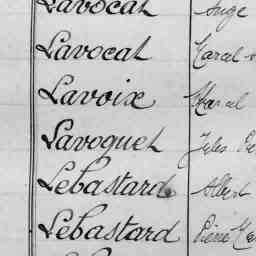 Lavocat Ange
Lavocat Marcel
Lavoix Marcel
Lavoquet Jules
Lebastard Albert
Lebastard Pierre